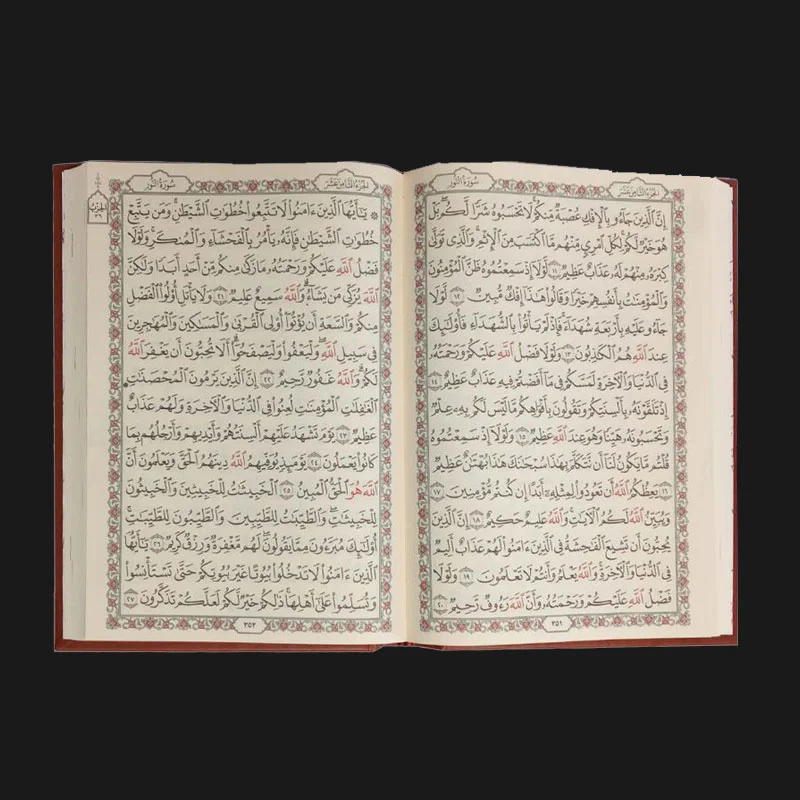 الجزء الثامن عشر
سورة النور
إِنَّ ٱلَّذِينَ جَآءُو بِٱلْإِفْكِ عُصْبَةٌ مِّنكُمْ ۚ لَا تَحْسَبُوهُ شَرًّا لَّكُم ۖ بَلْ
هُوَ خَيْرٌ لَّكُمْ ۚ لِكُلِّ ٱمْرِئٍ مِّنْهُم مَّا ٱكْتَسَبَ مِنَ ٱلْإِثْمِ ۚ وَٱلَّذِى تَوَلَّىٰ
كِبْرَهُۥ مِنْهُمْ لَهُۥ عَذَابٌ عَظِيمٌ ١١ لَّوْلَآ إِذْ سَمِعْتُمُوهُ ظَنَّ ٱلْمُؤْمِنُونَ
وَٱلْمُؤْمِنَـٰتُ بِأَنفُسِهِمْ خَيْرًا وَقَالُوا۟ هَـٰذَآ إِفْكٌ مُّبِينٌ ١٢ لَّوْلَا
جَآءُو عَلَيْهِ بِأَرْبَعَةِ شُهَدَآءَ ۚ فَإِذْ لَمْ يَأْتُوا۟ بِٱلشُّهَدَآءِ فَأُو۟لَـٰٓئِكَ
عِندَ ٱللَّهِ هُمُ ٱلْكَـٰذِبُونَ ١٣ وَلَوْلَا فَضْلُ ٱللَّهِ عَلَيْكُمْ وَرَحْمَتُهُۥ
فِى ٱلدُّنْيَا وَٱلْـَٔاخِرَةِ لَمَسَّكُمْ فِى مَآ أَفَضْتُمْ فِيهِ عَذَابٌ عَظِيمٌ ١٤
إِذْ تَلَقَّوْنَهُۥ بِأَلْسِنَتِكُمْ وَتَقُولُونَ بِأَفْوَاهِكُم مَّا لَيْسَ لَكُم بِهِۦ عِلْمٌ
وَتَحْسَبُونَهُۥ هَيِّنًا وَهُوَ عِندَ ٱللَّهِ عَظِيمٌ ١٥ وَلَوْلَآ إِذْ سَمِعْتُمُوهُ
قُلْتُم مَّا يَكُونُ لَنَآ أَن نَّتَكَلَّمَ بِهَـٰذَا سُبْحَـٰنَكَ هَـٰذَا بُهْتَـٰنٌ عَظِيمٌ
١٦ يَعِظُكُمُ ٱللَّهُ أَن تَعُودُوا۟ لِمِثْلِهِۦٓ أَبَدًا إِن كُنتُم مُّؤْمِنِينَ ١٧
وَيُبَيِّنُ ٱللَّهُ لَكُمُ ٱلْـَٔايَـٰتِ ۚ وَٱللَّهُ عَلِيمٌ حَكِيمٌ ١٨ إِنَّ ٱلَّذِينَ
يُحِبُّونَ أَن تَشِيعَ ٱلْفَـٰحِشَةُ فِى ٱلَّذِينَ ءَامَنُوا۟ لَهُمْ عَذَابٌ أَلِيمٌ
فِى ٱلدُّنْيَا وَٱلْـَٔاخِرَةِ ۚ وَٱللَّهُ يَعْلَمُ وَأَنتُمْ لَا تَعْلَمُونَ ١٩ وَلَوْلَا
فَضْلُ ٱللَّهِ عَلَيْكُمْ وَرَحْمَتُهُۥ وَأَنَّ ٱللَّهَ رَءُوفٌ رَّحِيمٌ ٢٠
٣٥١
الجزء الثامن عشر
سورة النور
الحزب
٣٦
۞ يَـٰٓأَيُّهَا ٱلَّذِينَ ءَامَنُوا۟ لَا تَتَّبِعُوا۟ خُطُوَٰتِ ٱلشَّيْطَـٰنِ ۚ وَمَن يَتَّبِعْ
خُطُوَٰتِ ٱلشَّيْطَـٰنِ فَإِنَّهُۥ يَأْمُرُ بِٱلْفَحْشَآءِ وَٱلْمُنكَرِ ۚ وَلَوْلَا
فَضْلُ ٱللَّهِ عَلَيْكُمْ وَرَحْمَتُهُۥ مَا زَكَىٰ مِنكُم مِّنْ أَحَدٍ أَبَدًا وَلَـٰكِنَّ
ٱللَّهَ يُزَكِّى مَن يَشَآءُ ۗ وَٱللَّهُ سَمِيعٌ عَلِيمٌ ٢١ وَلَا يَأْتَلِ أُو۟لُوا۟ ٱلْفَضْلِ
مِنكُمْ وَٱلسَّعَةِ أَن يُؤْتُوٓا۟ أُو۟لِى ٱلْقُرْبَىٰ وَٱلْمَسَـٰكِينَ وَٱلْمُهَـٰجِرِينَ
فِى سَبِيلِ ٱللَّهِ ۖ وَلْيَعْفُوا۟ وَلْيَصْفَحُوٓا۟ ۗ أَلَا تُحِبُّونَ أَن يَغْفِرَ ٱللَّهُ
لَكُمْ ۗ وَٱللَّهُ غَفُورٌ رَّحِيمٌ ٢٢ إِنَّ ٱلَّذِينَ يَرْمُونَ ٱلْمُحْصَنَـٰتِ
ٱلْغَـٰفِلَـٰتِ ٱلْمُؤْمِنَـٰتِ لُعِنُوا۟ فِى ٱلدُّنْيَا وَٱلْـَٔاخِرَةِ وَلَهُمْ عَذَابٌ
عَظِيمٌ ٢٣ يَوْمَ تَشْهَدُ عَلَيْهِمْ أَلْسِنَتُهُمْ وَأَيْدِيهِمْ وَأَرْجُلُهُم بِمَا
كَانُوا۟ يَعْمَلُونَ ٢٤ يَوْمَئِذٍ يُوَفِّيهِمُ ٱللَّهُ دِينَهُمُ ٱلْحَقَّ وَيَعْلَمُونَ أَنَّ
ٱللَّهَ هُوَ ٱلْحَقُّ ٱلْمُبِينُ ٢٥ ٱلْخَبِيثَـٰتُ لِلْخَبِيثِينَ وَٱلْخَبِيثُونَ
لِلْخَبِيثَـٰتِ ۖ وَٱلطَّيِّبَـٰتُ لِلطَّيِّبِينَ وَٱلطَّيِّبُونَ لِلطَّيِّبَـٰتِ ۚ
أُو۟لَـٰٓئِكَ مُبَرَّءُونَ مِمَّا يَقُولُونَ ۖ لَهُم مَّغْفِرَةٌ وَرِزْقٌ كَرِيمٌ ٢٦ يَـٰٓأَيُّهَا
ٱلَّذِينَ ءَامَنُوا۟ لَا تَدْخُلُوا۟ بُيُوتًا غَيْرَ بُيُوتِكُمْ حَتَّىٰ تَسْتَأْنِسُوا۟
وَتُسَلِّمُوا۟ عَلَىٰٓ أَهْلِهَا ۚ ذَٰلِكُمْ خَيْرٌ لَّكُمْ لَعَلَّكُمْ تَذَكَّرُونَ ٢٧
٣٥٢